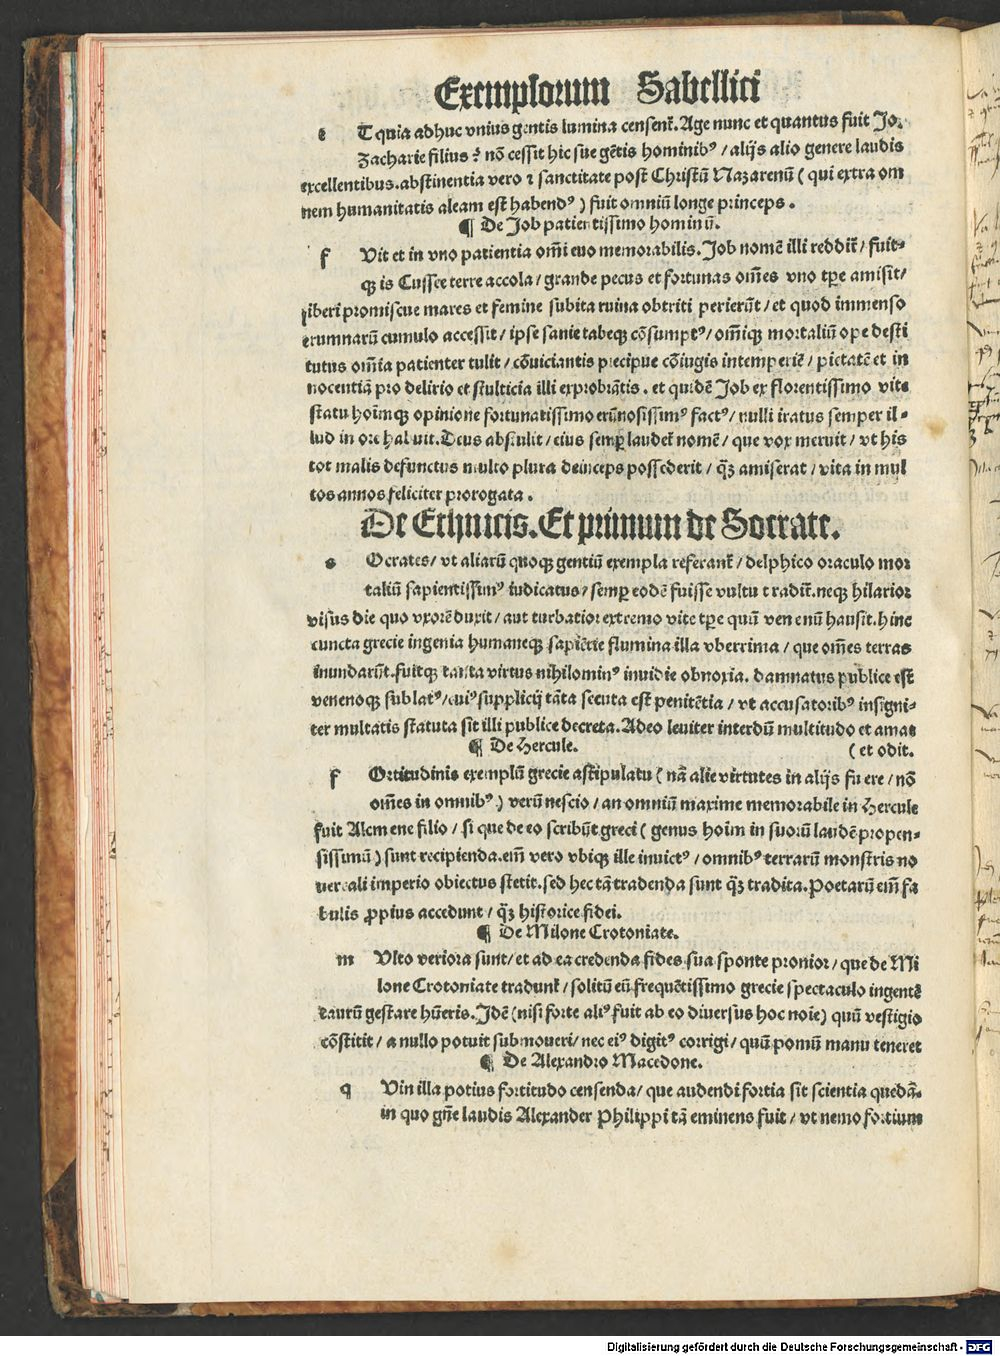 Exemplorum Sabellici
e T quia adhuc vnius gentis lumina censent̃. Age nunc et quantus fuit Jo.
Zacharie filius? nõ cessit hic sue gẽtis hominibꝰ / alijs alio genere laudis
excellentibus. abstinentia vero ⁊ sanctitate post Christũ Nazarenũ ( qui extra om
nem humanitatis aleam est habendꝰ ) fuit omniũ longe princeps.
¶ De Job patientissimo hominũ.
f Vit et in vno patientia om̃i euo memorabilis. Job nomẽ illi reddit̃ / fuit-
qꝫ is Cussee terre accola / grande pecus et fortunas om̃es vno tꝑe amisit /
liberi promiscue mares et femine subita ruina obtriti perierũt / et quod immenso
erumnarũ cumulo accessit / ipse sanie tabeqꝫ cõsumptꝰ / om̃iqꝫ mortaliũ ope desti
tutus om̃ia patienter tulit / cõuiciantis precipue cõiugis intemperiẽ / pietatẽ et in
nocentiã pro delirio et stulticia illi exprobrãtis. et quidẽ Job ex florentissimo vite
statu hoĩmqꝫ opinione fortunatissimo erũnosissimꝰ factꝰ / nulli iratus semper il-
lud in ore habuit. Deus abstulit / eius semꝑ laudet̃ nomẽ / que vox meruit / vt his
tot malis defunctus multo plura deinceps possederit / q̃ꝫ amiserat / vita in mul
tos annos feliciter prorogata.
De Ethnicis. Et primum de Socrate.
s Ocrates / vt aliarũ quoqꝫ gentiũ exempla referant̃ / delphico oraculo mor
taliũ sapientissimꝰ iudicatus / semꝑ eodẽ fuisse vultu tradit̃. neqꝫ hilarior
visus die quo vxorẽ duxit / aut turbatior extremo vite tꝑe quũ venenũ hausit. hinc
cuncta grecie ingenia humaneqꝫ sapiẽtie flumina illa vberrima / que om̃es terras
inundarũt. fuitqꝫ tanta virtus nihilominꝰ inuidie obnoxia. damnatus publice est
venenoqꝫ sublatꝰ / cuiꝰ supplicij tãta secuta est penitẽtia / vt accusatoribꝰ insigni-
ter multatis statuta sit illi publice decreta. Adeo leuiter interdũ multitudo et amat
¶ De Hercule. ( et odit.
f Ortitudinis exemplũ grecie astipulatu ( nã alie virtutes in alijs fuere / nõ
om̃es in omnibꝰ ) verũ nescio / an omniũ maxime memorabile in Hercule
fuit Alcmene filio / si que de eo scribũt greci ( genus hoĩm in suorũ laudẽ propen-
sissimũ ) sunt recipienda. em̃ vero vbiqꝫ ille inuictꝰ / omnibꝰ terrarũ monstris no
uercali imperio obiectus stetit. sed hec tã tradenda sunt q̃ꝫ tradita. Poetarũ em̃ fa
bulis ꝓpius accedunt / q̃ꝫ historice fidei.
¶ De Milone Crotoniate.
m Vlto veriora sunt / et ad ea credenda fides sua sponte pronior / que de Mi
lone Crotoniate tradunt̃ / solitũ eũ frequẽtissimo grecie spectaculo ingentẽ
taurũ gestare hũeris. Idẽ ( nisi forte aliꝰ fuit ab eo diuersus hoc noĩe ) quũ vestigio
cõstitit / a nullo potuit submoueri / nec eiꝰ digitꝰ corrigi / quũ pomũ manu teneret
¶ De Alexandro Macedone.
q Vin illa potius fortitudo censenda / que audendi fortia sit scientia quedã.
in quo gñe laudis Alexander Philippi tã eminens fuit / vt nemo fortium
Digitalisierung gefördert durch die Deutsche Forschungsgemeinschaft - DFG